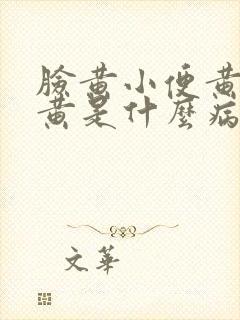 臉黃小便黃
黃是什麼病
文華